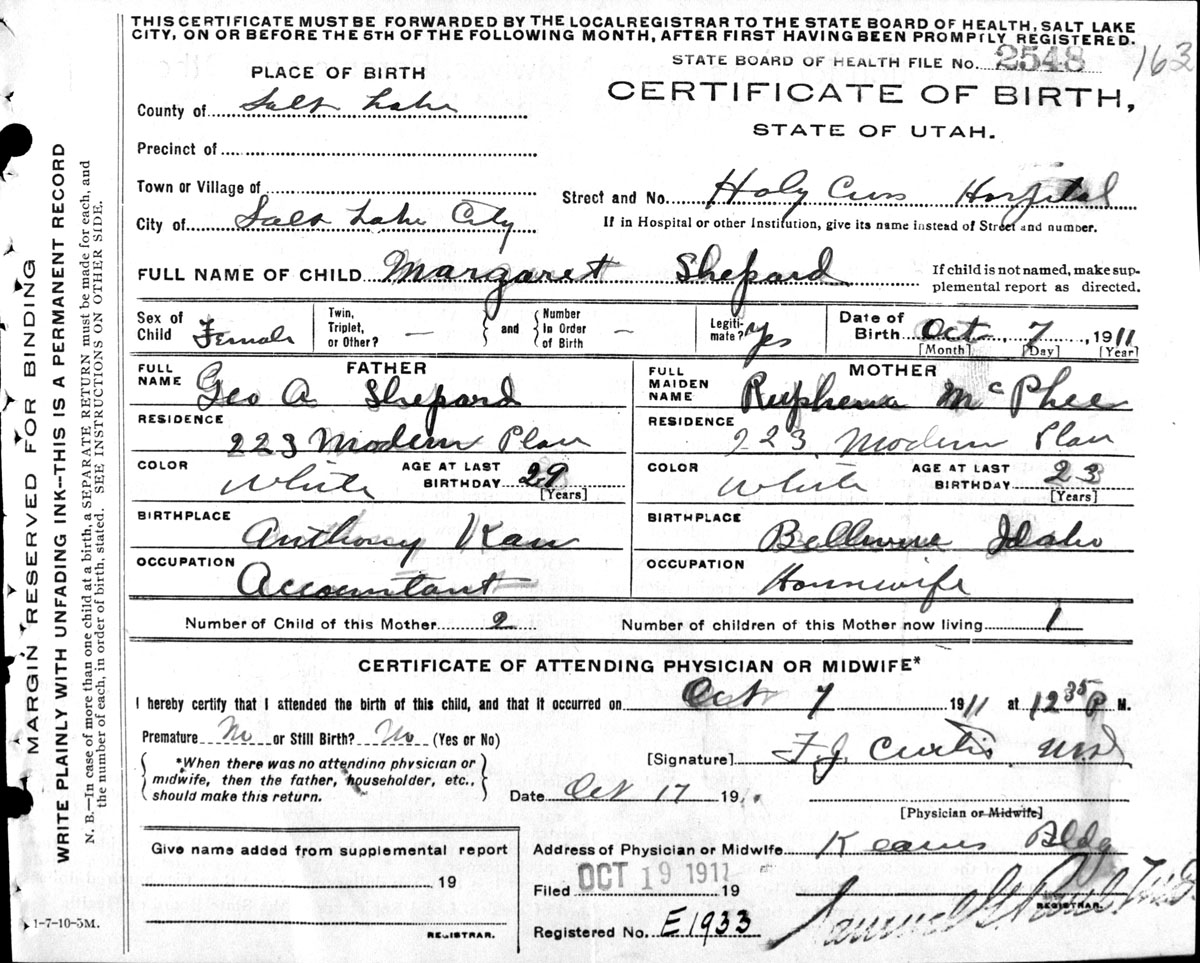 THIS CERTIFICATE MUST BE FORWARDED BY THE LOCAL REGISTRAR TO THE STATE BOARD OF HEALTH, SALT LAKE
CITY, ON OR BEFORE THE 5TH OF THE FOLLOWING MONTH, AFTER FIRST HAVING BEEN PROMPTLY REGISTERED.
STATE BOARD OF HEALTH FILE No. 2548 163
PLACE OF BIRTH
CERTIFICATE OF BIRTH,
STATE OF UTAH.
County of Salt Lake
Precinct of
Town or Village of
Street and No. Holy Cross Hospital
City of Salt Lake City
If in Hospital or other Institution, give its name instead of Street and number.
FULL NAME OF CHILD Margaret Shepard
If child is not named, make sup-
plemental report as directed.
Sex of Child Female
Twin, Triplet, or Other? —
and
Number In Order of Birth —
Legiti-mate? Yes
Date of Birth Oct 7, 1911
[Month] [Day] [Year]
FATHER
FULL NAME Geo A Shepard
RESIDENCE
223 Modern Plan
COLOR White
AGE AT LAST BIRTHDAY 29
[Years]
BIRTHPLACE
Anthony Kan
OCCUPATION
Accountant
MOTHER
FULL MAIDEN NAME Ruphena McPhee
RESIDENCE
223 Modern Plan
COLOR White
AGE AT LAST BIRTHDAY 23
[Years]
BIRTHPLACE
Bellevue Idaho
OCCUPATION
Housewife
Number of Child of this Mother 2 Number of children of this Mother now living 1
CERTIFICATE OF ATTENDING PHYSICIAN OR MIDWIFE*
I hereby certify that I attended the birth of this child, and that it occurred on Oct 7 1911 at 12 35 P M.
Premature No or Still Birth? No (Yes or No)
*When there was no attending physician or
midwife, then the father, householder, etc.,
should make this return.
[Signature] F. J. Curtis MD
Date Oct 17 191
[Physician or Midwife]
Give name added from supplemental report
19
REGISTRAR.
Address of Physician or Midwife Kearns Bldg
Filed OCT 19 1911 19
Registered No. E1933
REGISTRAR.
1-7-10-5M.
MARGIN RESERVED FOR BINDING
WRITE PLAINLY WITH UNFADING INK--THIS IS A PERMANENT RECORD
N. B.—In case of more than one child at a birth, a SEPARATE RETURN must be made for each, and
the number of each, in order of birth, stated. SEE INSTRUCTIONS ON OTHER SIDE.